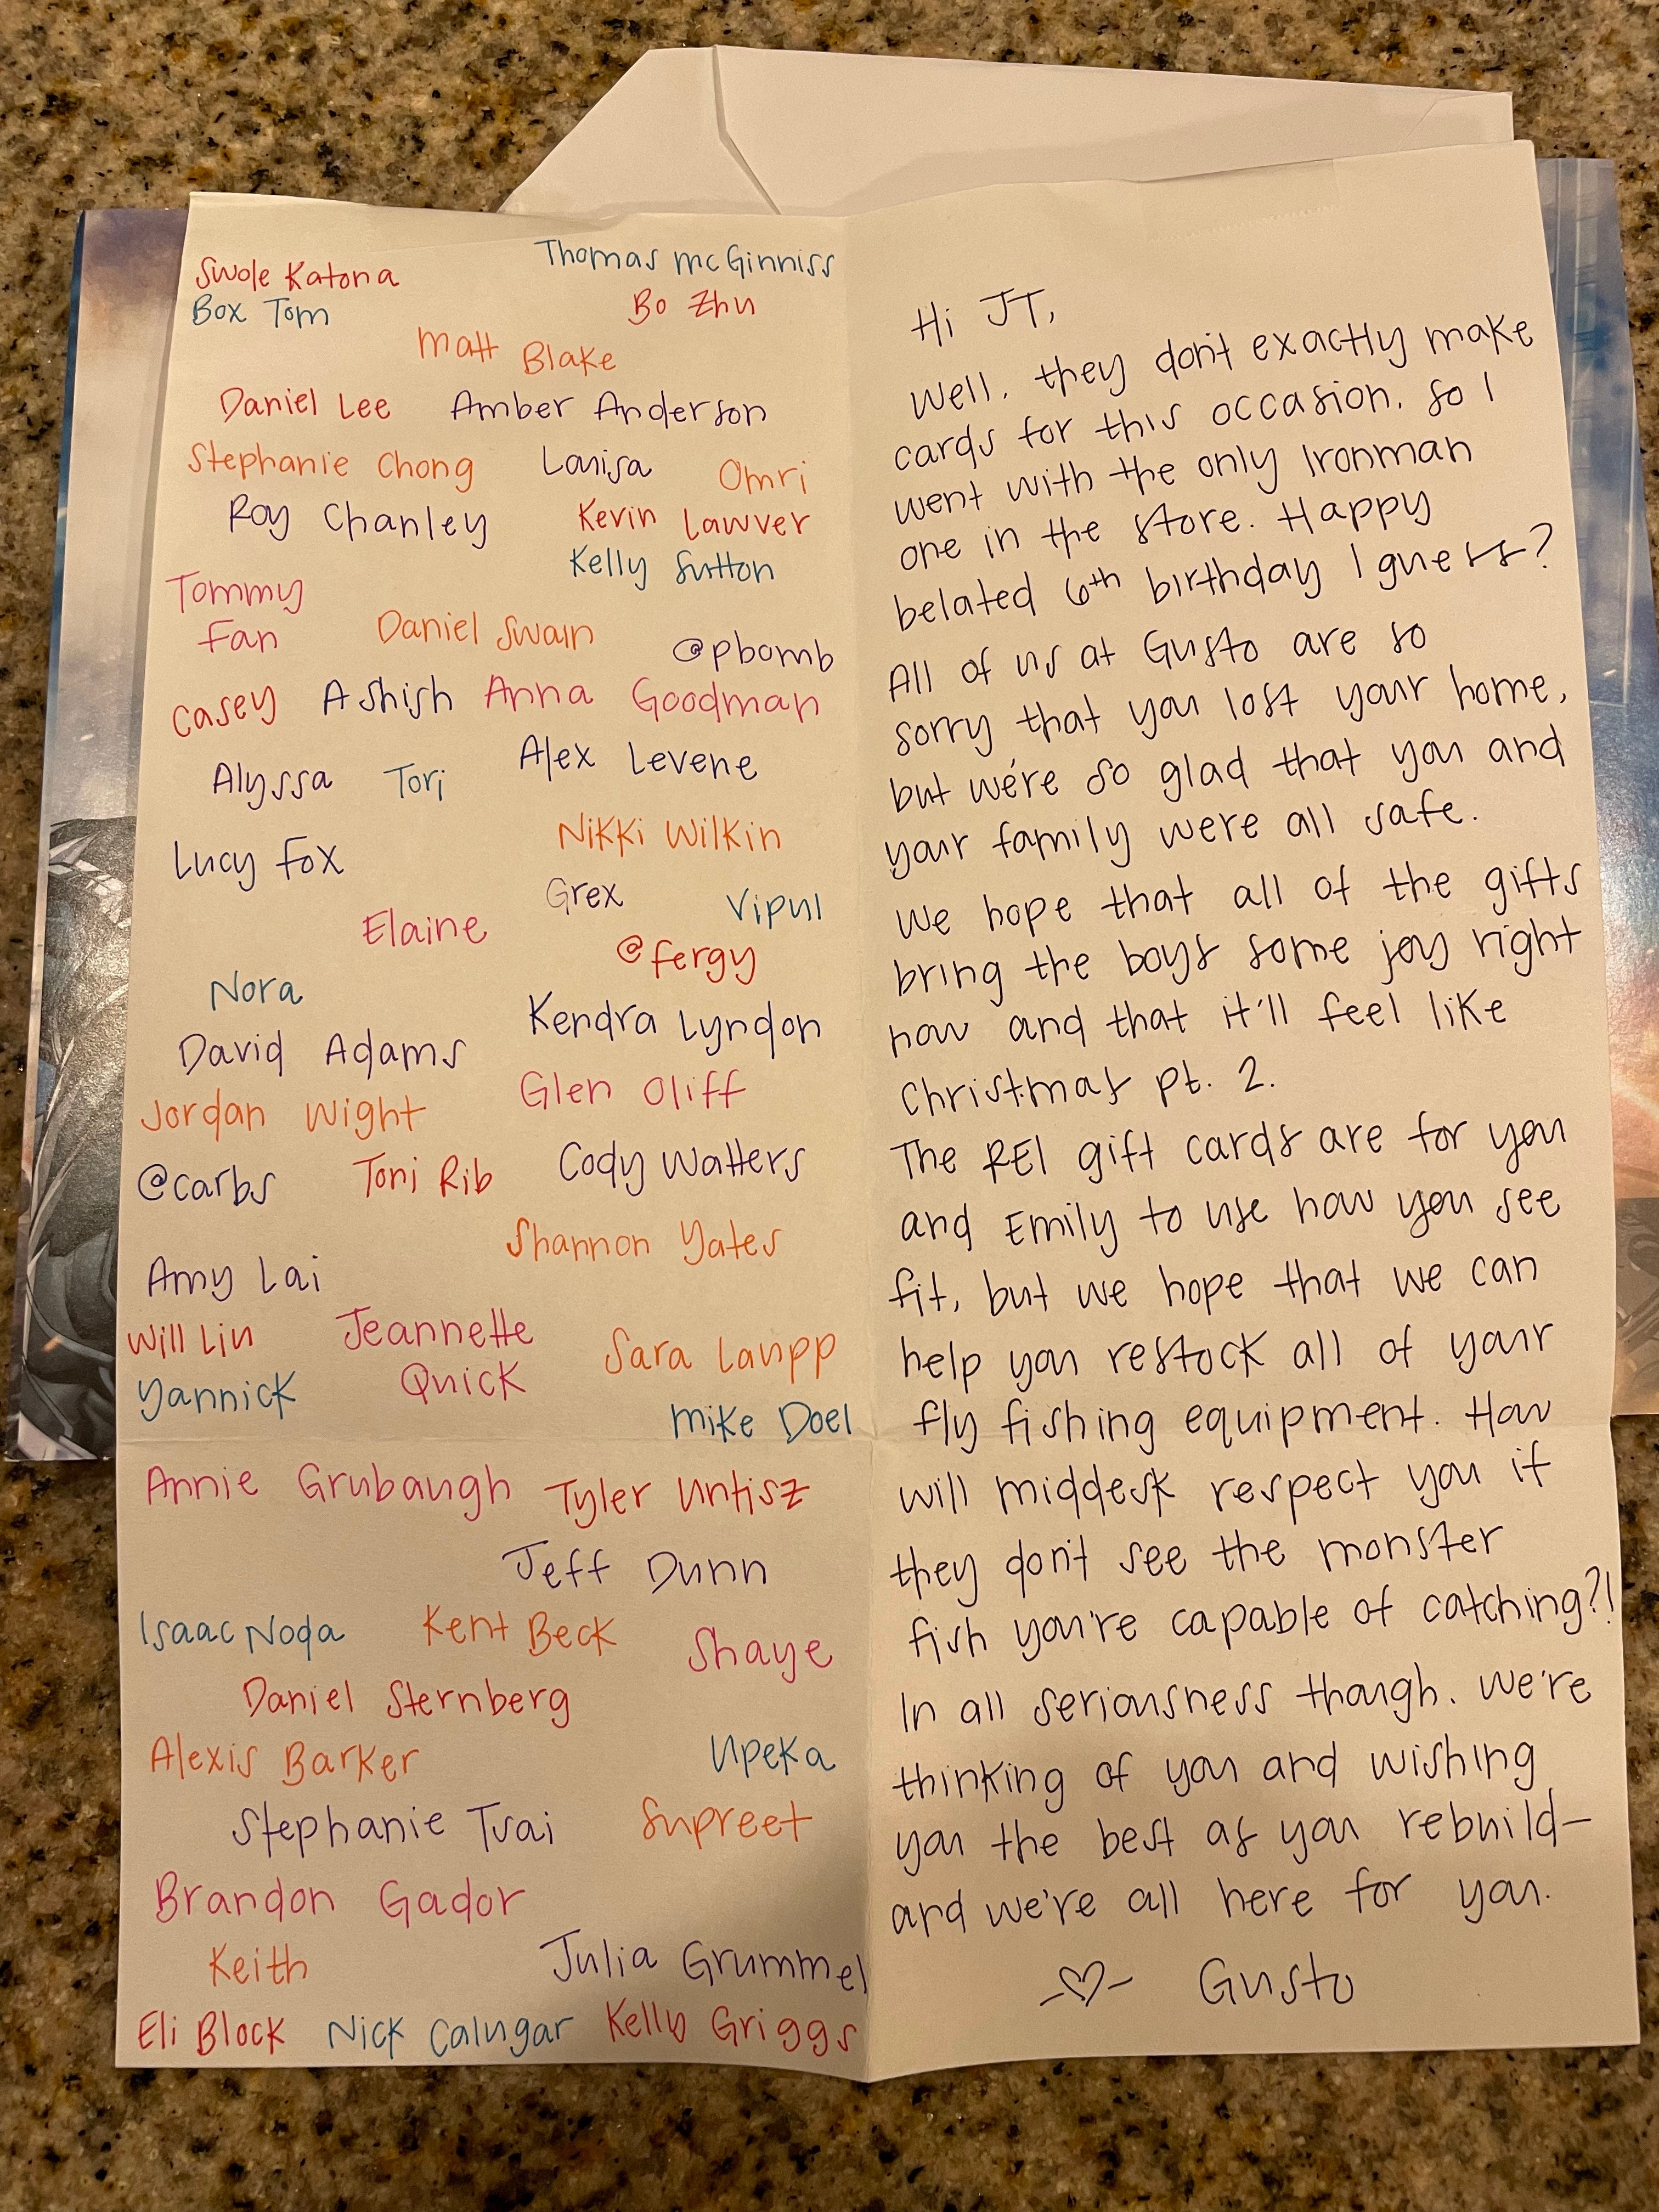 Swole Katona
Thomas McGinniss
Box Tom
Bo Zhu
Matt Blake
Daniel Lee
Amber Anderson
Stephanie Chong
Louisa
Omri
Roy Chanley
Kevin Lawver
Kelly Sutton
Tommy
Fan
Daniel Swain
@pbomb
Casey
Ashish
Anna Goodman
Alyssa
Tori
Alex Levene
Lucy Fox
Nikki Wilkin
Grex
Vipul
Elaine
@fergy
Nora
Kendra Lyndon
David Adams
Glen Oliff
Jordan Wight
@carbs
Toni Rib
Cody Watters
Shannon Yates
Amy Lai
Will Liu
Jeannette
Quick
Sara Laupp
Yannick
Mike Doel
Annie Grubaugh
Tyler Untisz
Jeff Dunn
Isaac Noda
Kent Beck
Shaye
Daniel Sternberg
Alexis Barker
Upeka
Stephanie Tsai
Supreet
Brandon Gador
Keith
Julia Grummel
Eli Block
Nick Calugar
Kelly Griggs
Hi JT,
Well, they don't exactly make
cards for this occasion, so I
went with the only Ironman
one in the store. Happy
belated 6th birthday I guess?
All of us at Gusto are so
sorry that you lost your home,
but we're so glad that you and
your family were all safe.
We hope that all of the gifts
bring the boys some joy right
now and that it'll feel like
Christmas pt. 2.
The REI gift cards are for you
and Emily to use how you see
fit, but we hope that we can
help you restock all of your
fly fishing equipment. How
will middesk respect you if
they don't see the monster
fish you're capable of catching?!
In all seriousness though, we're
thinking of you and wishing
you the best as you rebuild-
and we're all here for you.
Gusto